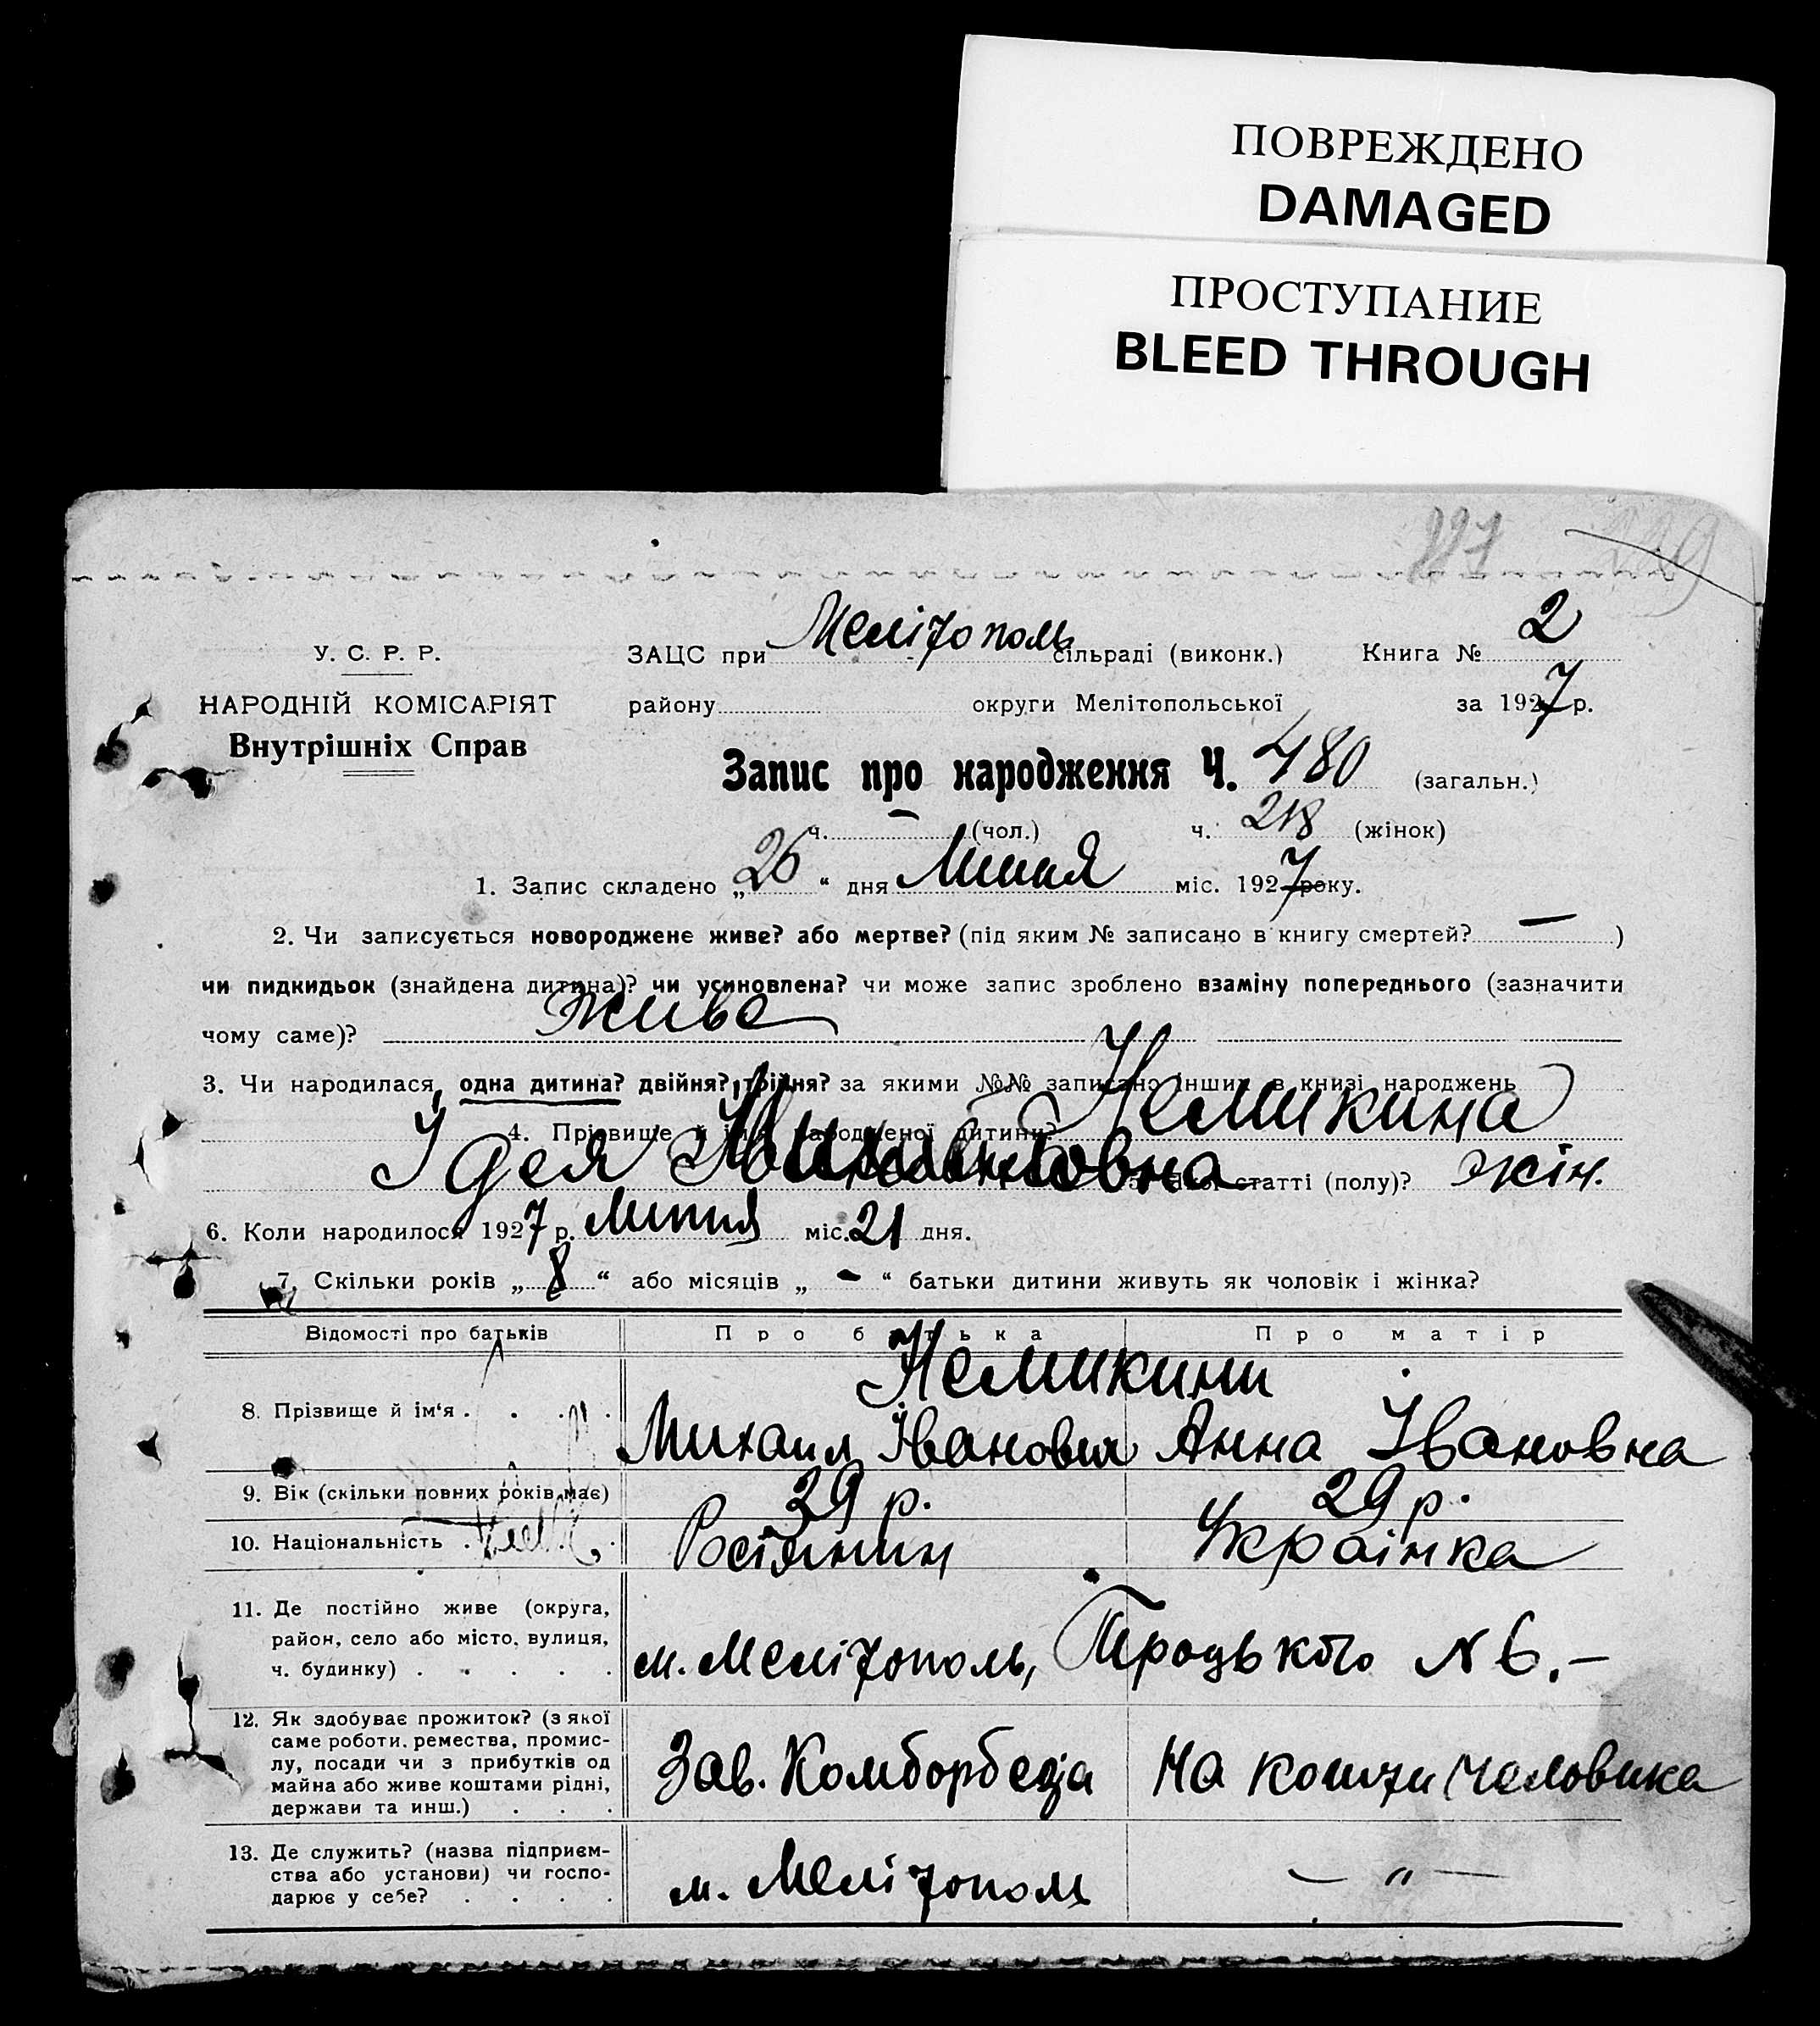 ПОВРЕЖДЕНО
DAMAGED
ПРОСТУПАНИЕ
BLEED THROUGH
227 229
У. С. Р. Р.
НАРОДНІЙ КОМІСАРІЯТ
Внутрішніх Справ
ЗАЦС при Мелітополь сільраді (виконк.) Книга № 2
району округи Мелітопольської за 1927 р.
Запис про народження Ч. 480 (загальн.)
ч. — (чол.) ч. 218 (жінок)
1. Запис складено „26“ дня Липня міс. 1927 року.
2. Чи записується новороджене живе? або мертве? (під яким № записано в книгу смертей? — )
чи пидкидьок (знайдена дитина)? чи усиновлена? чи може запис зроблено взаміну попереднього (зазначити
чому саме)? живе
3. Чи народилася одна дитина? двійня? трійня? за якими №№ записано інших в книзі народжень
4. Прізвище й ім'я народженої дитини? Немикина
Ідея 5. Якої статті (полу)? жін.
6. Коли народилося 1927 р. липня міс. 21 дня.
7. Скільки років „ 8 “ або місяців „ - “ батьки дитини живуть як чоловік і жінка?
Відомості про батьків Про батька Про матір
8. Прізвище й ім'я . . . . Немикини
Михаил Іванович Анна Івановна
9. Вік (скільки повних років має) 29 р. 29 р.
10. Національність . Росіянин Українка
11. Де постійно живе (округа,
район, село або місто, вулиця,
ч. будинку) . . . . . м. Мелітополь, Троцького № 6.—
12. Як здобуває прожиток? (з якої
саме роботи, ремества, промис-
лу, посади чи з прибутків од
майна або живе коштами рідні,
держави та инш.) . . . Зав. Комборбезја На кошти человика
13. Де служить? (назва підприєм-
ства або установи) чи госпо-
дарює у себе? . . . . м. Мелітополь — „ —